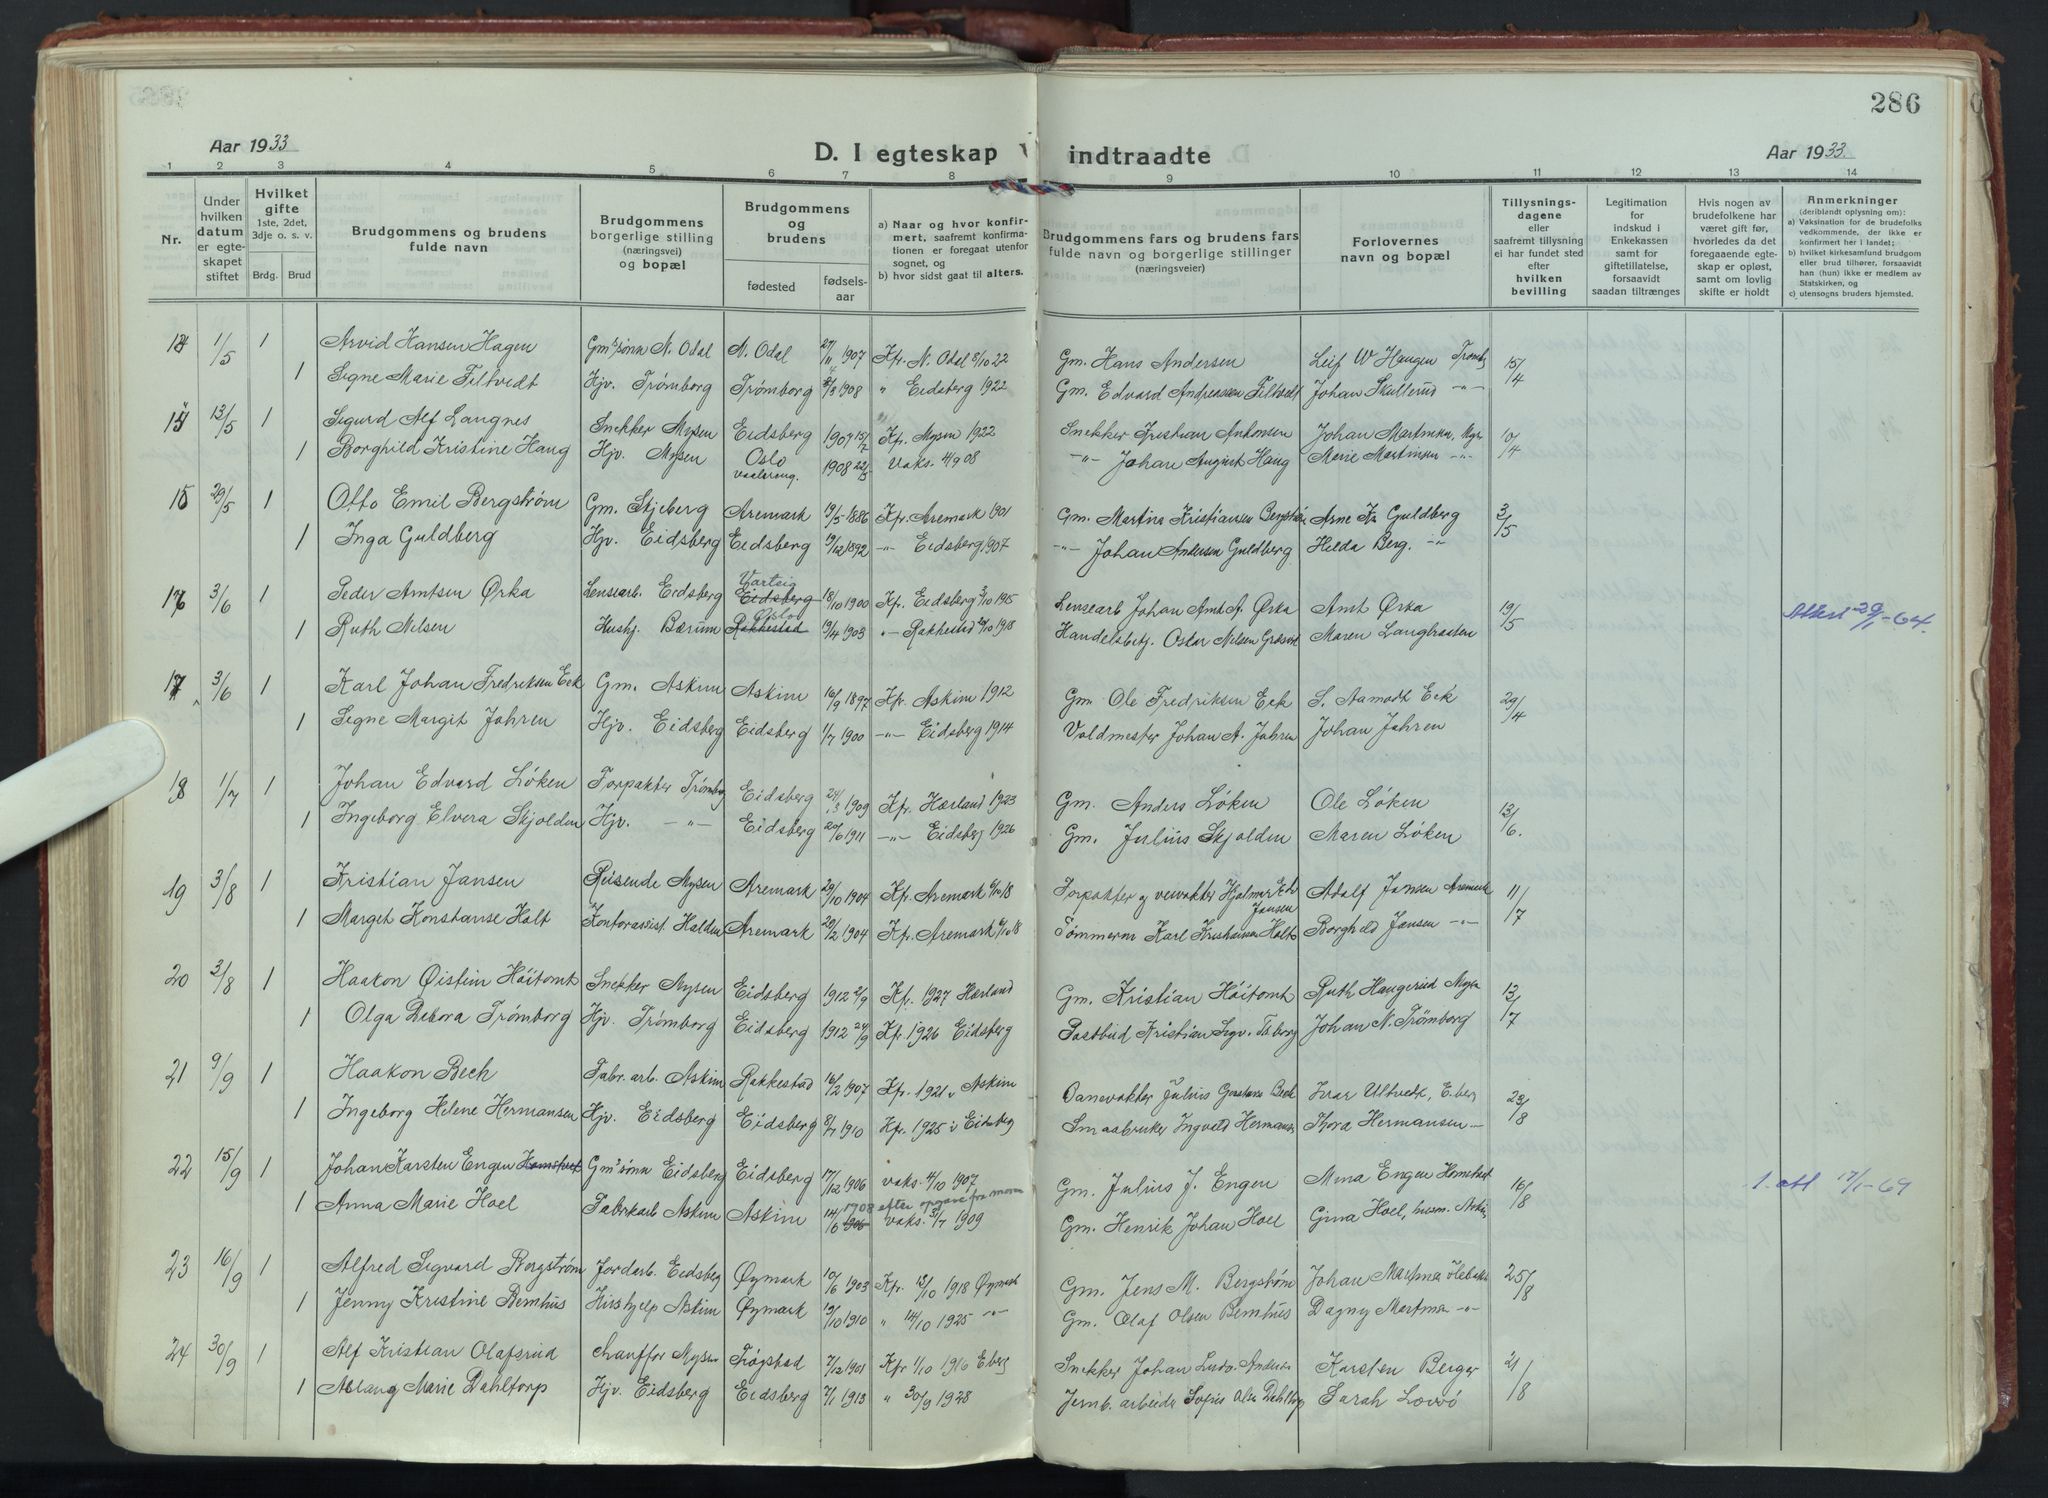 286
Aar 1933
D. I egteskap indtraadte
Aar 1933.
1 2 3 4 5 6 7 8 9 10 11 12 13 14
Nr.
Under hvilken datum er egteskapet stiftet
Hvilket gifte 1ste, 2det, 3dje o. s. v.
Brdg. Brud
Brudgommens og brudens fulde navn
Brudgommens borgerlige stilling (næringsvei) og bopæl
Brudgommens og brudens
fødested
fødselsaar
a) Naar og hvor konfirmert, saafremt konfirmationen er foregaat utenfor sognet, og
b) hvor sidst gaat til alters.
Brudgommens fars og brudens fars fulde navn og borgerlige stillinger (næringsveier)
Forlovernes navn og bopæl
Tillysningsdagene eller saafremt tillysning ei har fundet sted efter hvilken bevilling
Legitimation for indskud i Enkekassen samt for giftetillatelse, forsaavidt saadan tiltrænges
Hvis nogen av brudefolkene har været gift før, hvorledes da det foregaaende egteskap er opløst, samt om lovlig skifte er holdt
Anmerkninger (deriblandt oplysning om):
a) Vaksination for de brudefolks vedkommende, der ikke er konfirmert her i landet;
b) hvilket kirkesamfund brudgom eller brud tilhører, forsaavidt han (hun) ikke er medlem av Statskirken, og
c) utensogns bruders hjemsted.
14 1/5 1 Arvid Hansen Hagen Gm's sønn N. Odal N. Odal 27/11 1907 Kfr. N. Odal 8/10 22 Gm. Hans Andersen Leif W Haugen Trømb. 15/4
1 Signe Marie Filtvedt Hjv. Trømborg Trømborg 1908 " Eidsberg 1922 Gm. Edvard Andreassen Filtvedt Johan Skullerud -"-
15 13/5 1 Sigurd Alf Langnes Snekker Mysen Eidsberg 1907 15/2 Kfr. Mysen 1922 Snekker Kristian Antonsen Johan Martinsen, Mysen 10/4
1 Borghild Kristine Haug Hjv. Mysen Oslo vaalereng. 1908 22/5 Vaks. 4/9 08 -"- Johan August Haug Marie Martinsen -"-
16 29/5 1 Otto Emil Bergstrøm Gm. Skjeberg Aremark 19/5 1886 Kfr. Aremark 1901 Gm. Martins Kristiansen Bergstrøm Arne Kr Guldberg 3/5
1 Inga Guldberg Hjv. Eidsberg Eidsberg 19/12 1892 -"- Eidsberg 1907 -"- Johan Andersen Guldberg Helda Berg. -"-
17 3/6 1 Peder Amtsen Ørka Lensearb. Eidsberg Eidsberg Varteig 18/10 1900 Kfr. Eidsberg 3/10 1915 Lensearb Johan Amt A. Ørka Amt Ørka 19/5 Attest 29/1-64.
1 Ruth Nilsen Hushj. Bærum Rakkestad Oslo 19/4 1903 -"- Rakkestad 6/10 1918 Handelsbetj. Oskar Nilsen Maren Langbraaten
17 3/6 1 Karl Johan Fredriksen Eek Gm. Askim Askim 16/9 1897 Kfr. Askim 1912 Gm Ole Fredriksen Eek S. Aamodt Eek 29/4
1 Signe Margit Jahren Hjv. Eidsberg Eidsberg 1/7 1900 -"- Eidsberg 1914 Voldmester Johan A. Jahren Johan Jahren
18 1/7 1 Johan Edvard Løken Forpakter Trømborg Eidsberg 24/3 1909 Kfr. Hærland 1923 Gm. Anders Løken Ole Løken 13/6.
1 Ingeborg Elvera Skjolden Hjv. -"- Eidsberg 20/6 1911 -"- Eidsberg 1926 Gm. Julius Skjolden Maren Løken
19 3/8 1 Kristian Jansen Reisende Mysen Aremark 29/10 1904 Kfr. Aremark 6/10 18 Forpakter og veivokter Hjalmar Jansen Adolf Jansen Aremark 11/7
1 Marget Konstanse Holt Kontorassist. Halden Aremark 20/2 1904 Kfr. Aremark 6/10 18 Tømmerm Karl Kristiansen Holt Borghild Jansen -"-
20 3/8 1 Haakon Øistein Høitomt Snekker Mysen Eidsberg 1912 2/9 Kf. 1927 Hærland Gm. Kristian Høitomt Ruth Haugerud Mysen 13/7
1 Olga Debora Trømborg Hjv. Trømborg Eidsberg 1912 24/9 Kfr. 1926 Eidsberg Postbud Kristian Sigv. Tr.borg Johan N. Trømborg
21 9/9 1 Haakon Bech Fabr. arb. Askim Rakkestad 16/2 1907 Kfr. 1921 i Askim Banevokter Julius Gustavs Bech Ivar Ultvedt, E.berg 23/8
1 Ingeborg Helene Hermansen Hjv. Eidsberg Eidsberg 8/7 1910 Kfr. 1925 i Eidsberg Smaabruker Ingvald Hermansen Thora Hermansen -
22 15/9 1 Johan Karsten Engen Homstvet Gm's sønn Eidsberg Eidsberg 17/12 1906 vaks. 4/10 1907 Gm. Julius J. Engen Mina Engen Homstvet 16/8 1. att 17/1-69
1 Anna Marie Hoel Fabrikarb Askim Askim 14/6 1906 1908 efter opgave fra moren vaks. 3/7 1909 Gm. Henrik Johan Hoel Gina Hoel, husm. Askim
23 16/9 1 Alfred Sigvard Bergstrøm Jordarb. Eidsberg Øymark 10/6 1903 Kfr. 13/10 1918 Øymark Gm. Jens M. Bergstrøm Johan Martinsen 25/8
1 Jenny Kristine Bemhus Hushjelp Askim Øymark 19/10 1910 " 14/10 1925 -"- Gm. Olaf Olsen Bemhus Dagny Martinsen -"-
24 30/9 1 Alf Kristian Olafsrud chauffør Mysen Trøgstad 7/12 1901 Kfr 1/10 1916 Eberg Snekker Johan Ludv. Anders Karsten Berger 21/8
1 Aslaug Marie Dahltorp Hjv. Eidsberg Eidsberg 7/1 1913 " 30/9 1928 Jernb. arbeider Sofus Olsen Dahltorp Sarah Lovvø